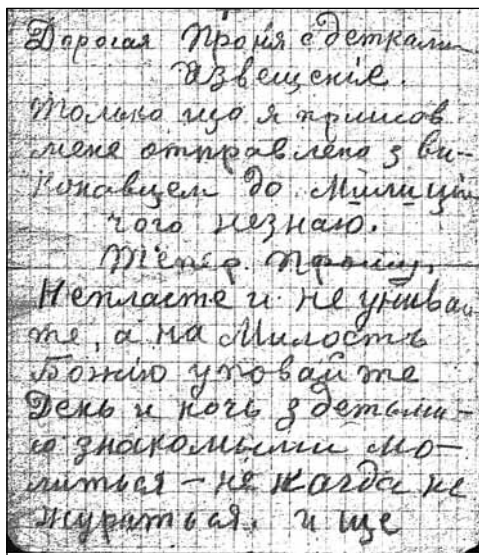 Дорогая Проня с детками
Извещеніе.
Только що я пришов
мене отправлено з ви-
конавцем до Милиціи
чого незнаю.
Тепер. Прошу,
Неплачте и не унивай
те, а на Милость
Божію уповайте
День и ночь з детьми-
со знакомыми мо-
литься - не когда не
журиться. и ще